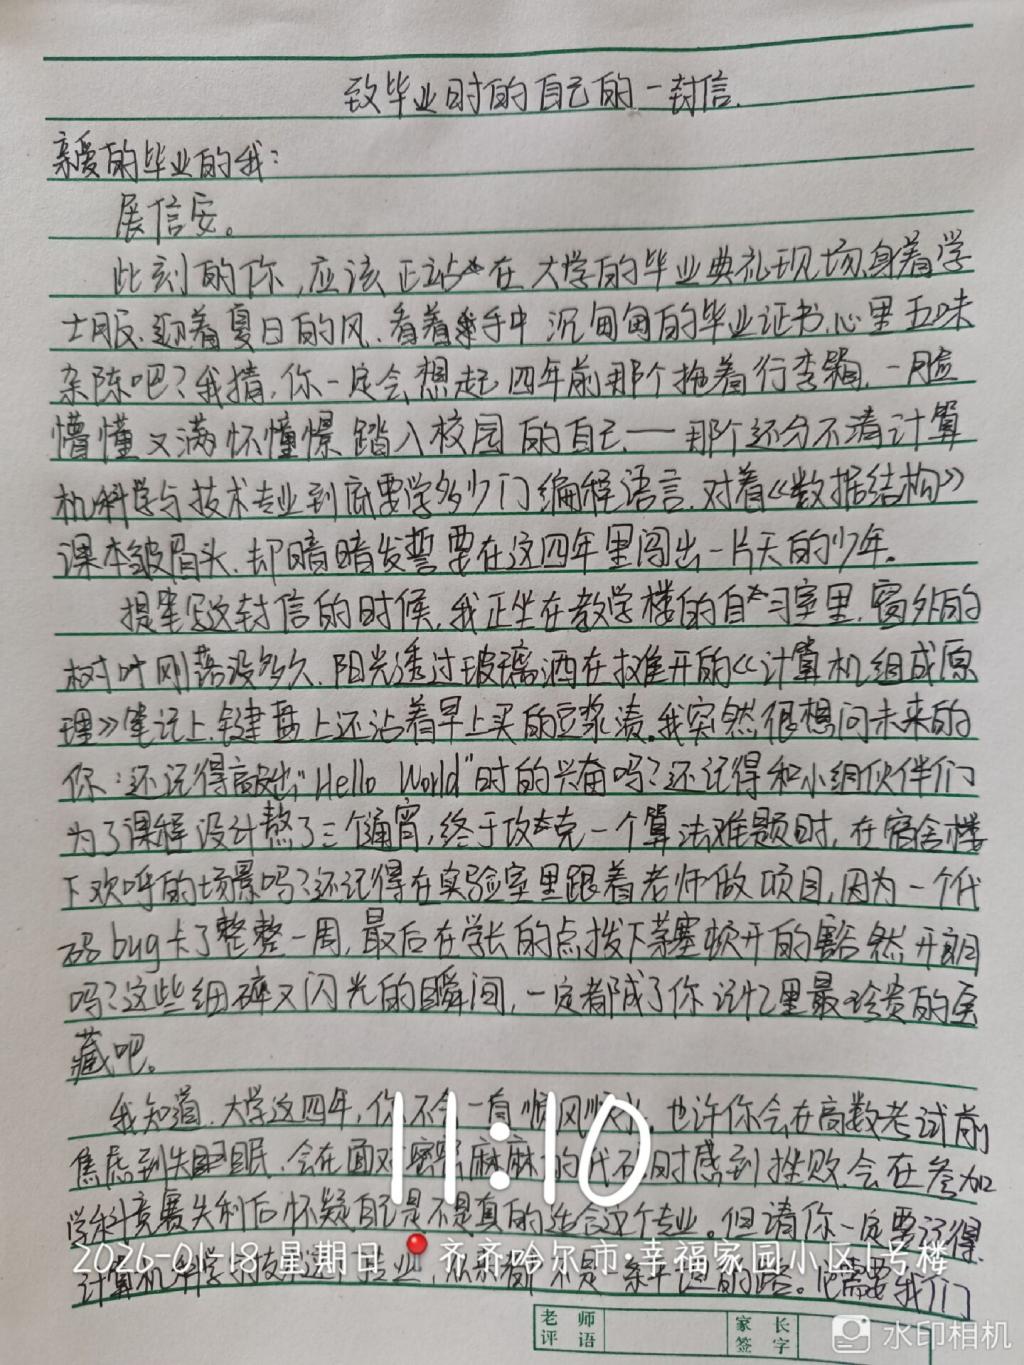 致毕业时的自己的一封信.
亲爱的毕业的我：
展信安。
此刻的你，应该正站在大学的毕业典礼现场，身着学
士服，迎着夏日的风，看着手中沉甸甸的毕业证书，心里五味
杂陈吧？我猜，你一定会想起四年前那个拖着行李箱，一脸
懵懂又满怀憧憬踏入校园的自己——那个还分不清计算
机科学与技术专业到底要学多少门编程语言，对着《数据结构》
课本皱眉头，却暗暗发誓要在这四年里闯出一片天的少年。
提笔写这封信的时候，我正坐在教学楼的自习室里，窗外的
树叶刚落没多久，阳光透过玻璃洒在摊开的《计算机组成原
理》笔记上，键盘上还沾着早上买的豆浆渍。我突然很想问未来的
你：还记得敲出"Hello World"时的兴奋吗？还记得和小组伙伴们
为了课程设计熬了三个通宵，终于攻克一个算法难题时，在宿舍楼
下欢呼的场景吗？还记得在实验室里跟着老师做项目，因为一个代
码bug卡了整整一周，最后在学长的点拨下茅塞顿开的豁然开朗
吗？这些细碎又闪光的瞬间，一定都成了你记忆里最珍贵的宝
藏吧。
我知道，大学这四年，你不会一直顺风顺水。也许你会在高数考试前
焦虑到失眠，会在面对密密麻麻的代码时感到挫败，会在参加
学科竞赛失利后怀疑自己是不是真的适合这个专业。但请你一定要记得，
计算机科学与技术这个专业，从来都不是一条平坦的路。它需要我们
11:10
2026-01-18 星期日 齐齐哈尔市·幸福家园小区1号楼
老师评语
家长签字
水印相机